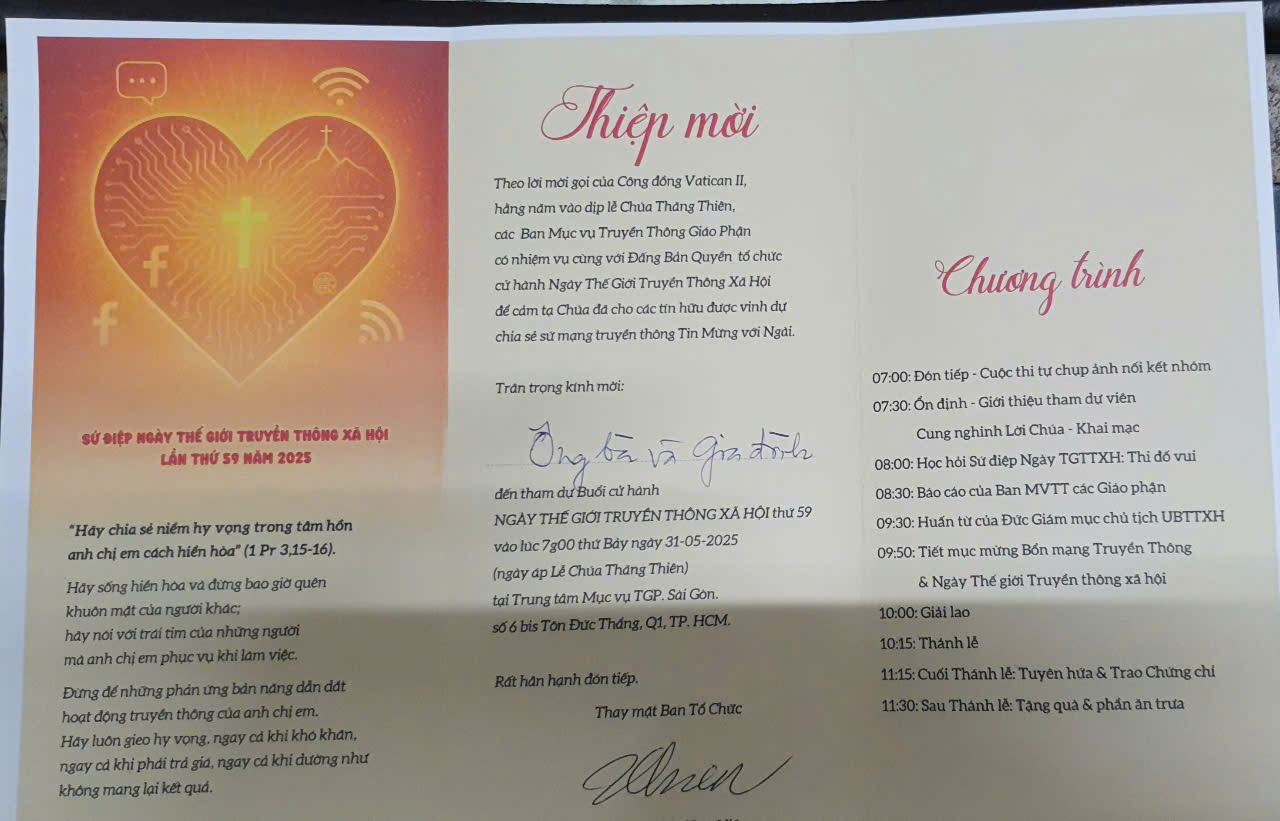 SỨ ĐIỆP NGÀY THẾ GIỚI TRUYỀN THÔNG XÃ HỘI
LẦN THỨ 59 NĂM 2025
"Hãy chia sẻ niềm hy vọng trong tâm hồn
anh chị em cách hiền hòa" (1 Pr 3,15-16).
Hãy sống hiền hòa và đừng bao giờ quên
khuôn mặt của người khác;
hãy nói với trái tim của những người
mà anh chị em phục vụ khi làm việc.
Đừng để những phản ứng bản năng dẫn dắt
hoạt động truyền thông của anh chị em.
Hãy luôn gieo hy vọng, ngay cả khi khó khăn,
ngay cả khi phải trả giá, ngay cả khi dường như
không mang lại kết quả.
Thiệp mời
Theo lời mời gọi của Công đồng Vatican II,
hằng năm vào dịp lễ Chúa Thăng Thiên,
các Ban Mục vụ Truyền Thông Giáo Phận
có nhiệm vụ cùng với Đấng Bản Quyền tổ chức
cử hành Ngày Thế Giới Truyền Thông Xã Hội
để cảm tạ Chúa đã cho các tín hữu được vinh dự
chia sẻ sứ mạng truyền thông Tin Mừng với Ngài.
Trân trọng kính mời:
Ông bà và Gia đình
đến tham dự Buổi cử hành
NGÀY THẾ GIỚI TRUYỀN THÔNG XÃ HỘI thứ 59
vào lúc 7g00 thứ Bảy ngày 31-05-2025
(ngày áp Lễ Chúa Thăng Thiên)
tại Trung tâm Mục vụ TGP. Sài Gòn.
số 6 bis Tôn Đức Thắng, Q1, TP. HCM.
Rất hân hạnh đón tiếp.
Thay mặt Ban Tổ Chức
Chương trình
07:00: Đón tiếp - Cuộc thi tự chụp ảnh nối kết nhóm
07:30: Ổn định - Giới thiệu tham dự viên
Cung nghinh Lời Chúa - Khai mạc
08:00: Học hỏi Sứ điệp Ngày TGTTXH: Thi đố vui
08:30: Báo cáo của Ban MVTT các Giáo phận
09:30: Huấn từ của Đức Giám mục chủ tịch UBTTXH
09:50: Tiết mục mừng Bổn mạng Truyền Thông
& Ngày Thế giới Truyền thông xã hội
10:00: Giải lao
10:15: Thánh lễ
11:15: Cuối Thánh lễ: Tuyên hứa & Trao Chứng chỉ
11:30: Sau Thánh lễ: Tặng quà & phần ăn trưa